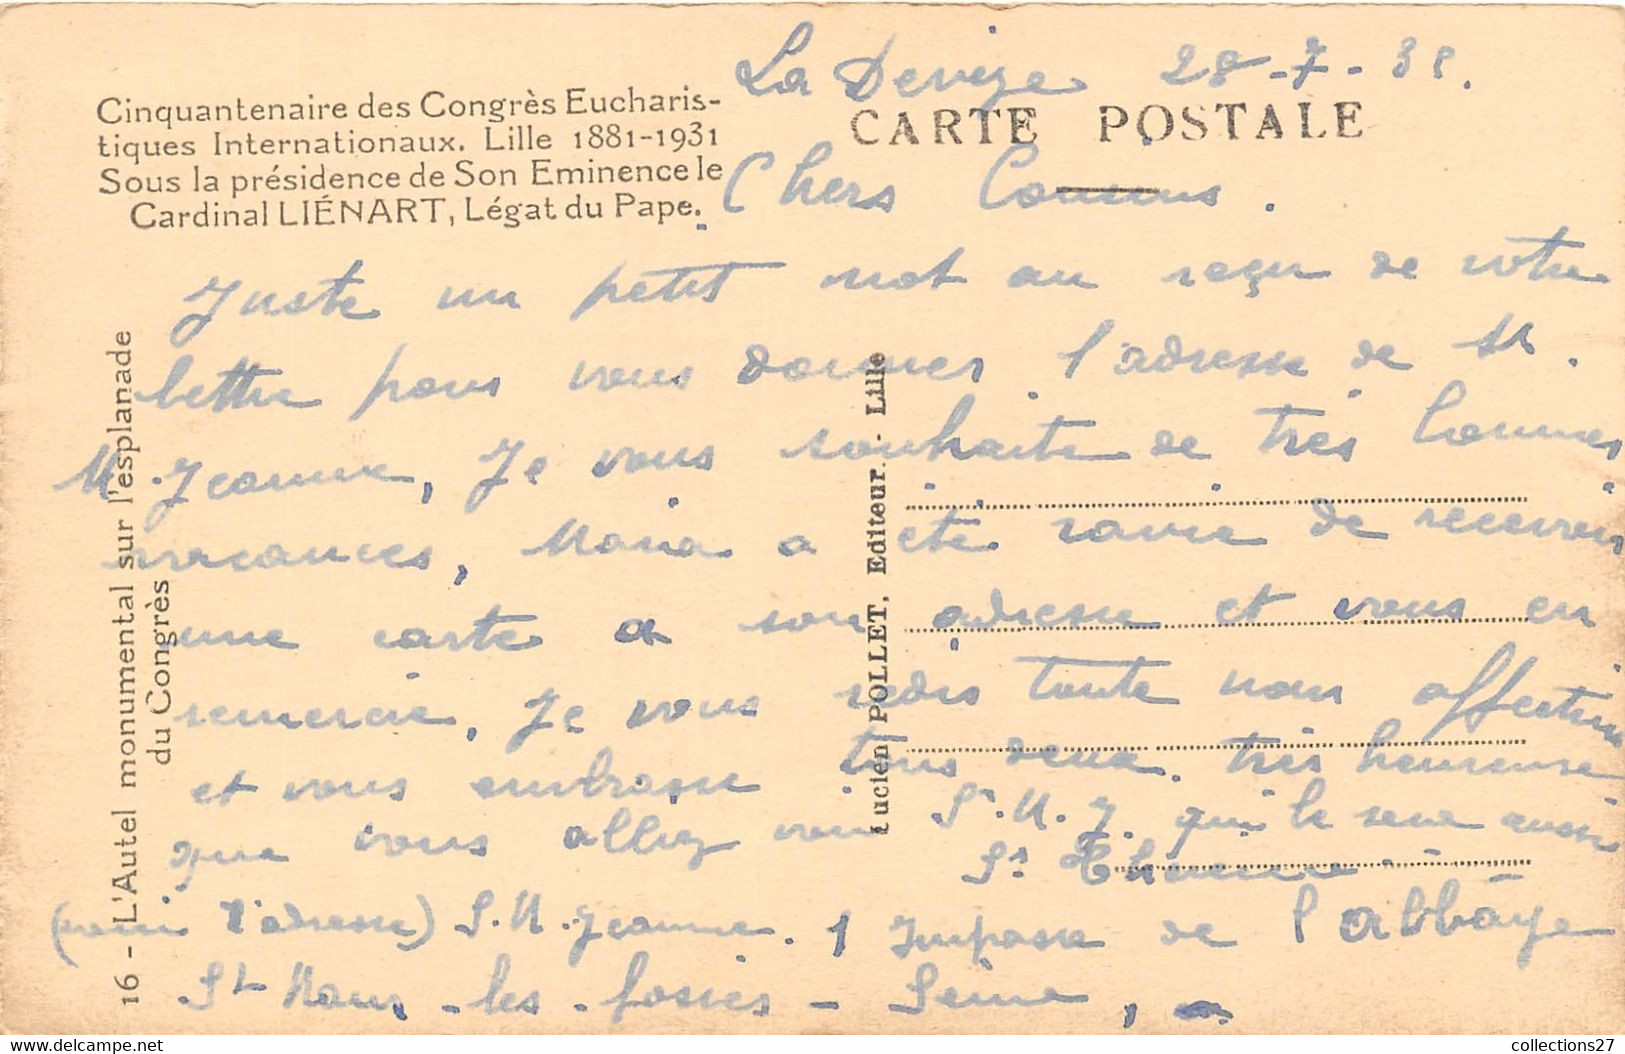 La Devèze 28-7-38.
Cinquantenaire des Congrès Eucharis-
tiques Internationaux. Lille 1881-1931
Sous la présidence de Son Eminence le
Cardinal LIÉNART, Légat du Pape.
CARTE POSTALE
Chers Cousins.
Juste un petit mot au reçu de votre
lettre pour vous donner l'adresse de Sr.
M. Jeanne, Je vous souhaite de très bonnes
vacances, Maria a été ravie de recevoir
une carte a son adresse et vous en
remercie, Je vous redis toute nous affection
et vous embrasse tous deux. très heureuse
que vous alliez voir Sr. M. J. qui le sera aussi
Sr
(voici l'adresse) S. M. Jeanne. 1 Impasse de l'abbaye
St Maur-les-fossés - Seine,
16 - L'Autel monumental sur l'esplanade
du Congrès
Lucien POLLET, Editeur - Lille
collections27